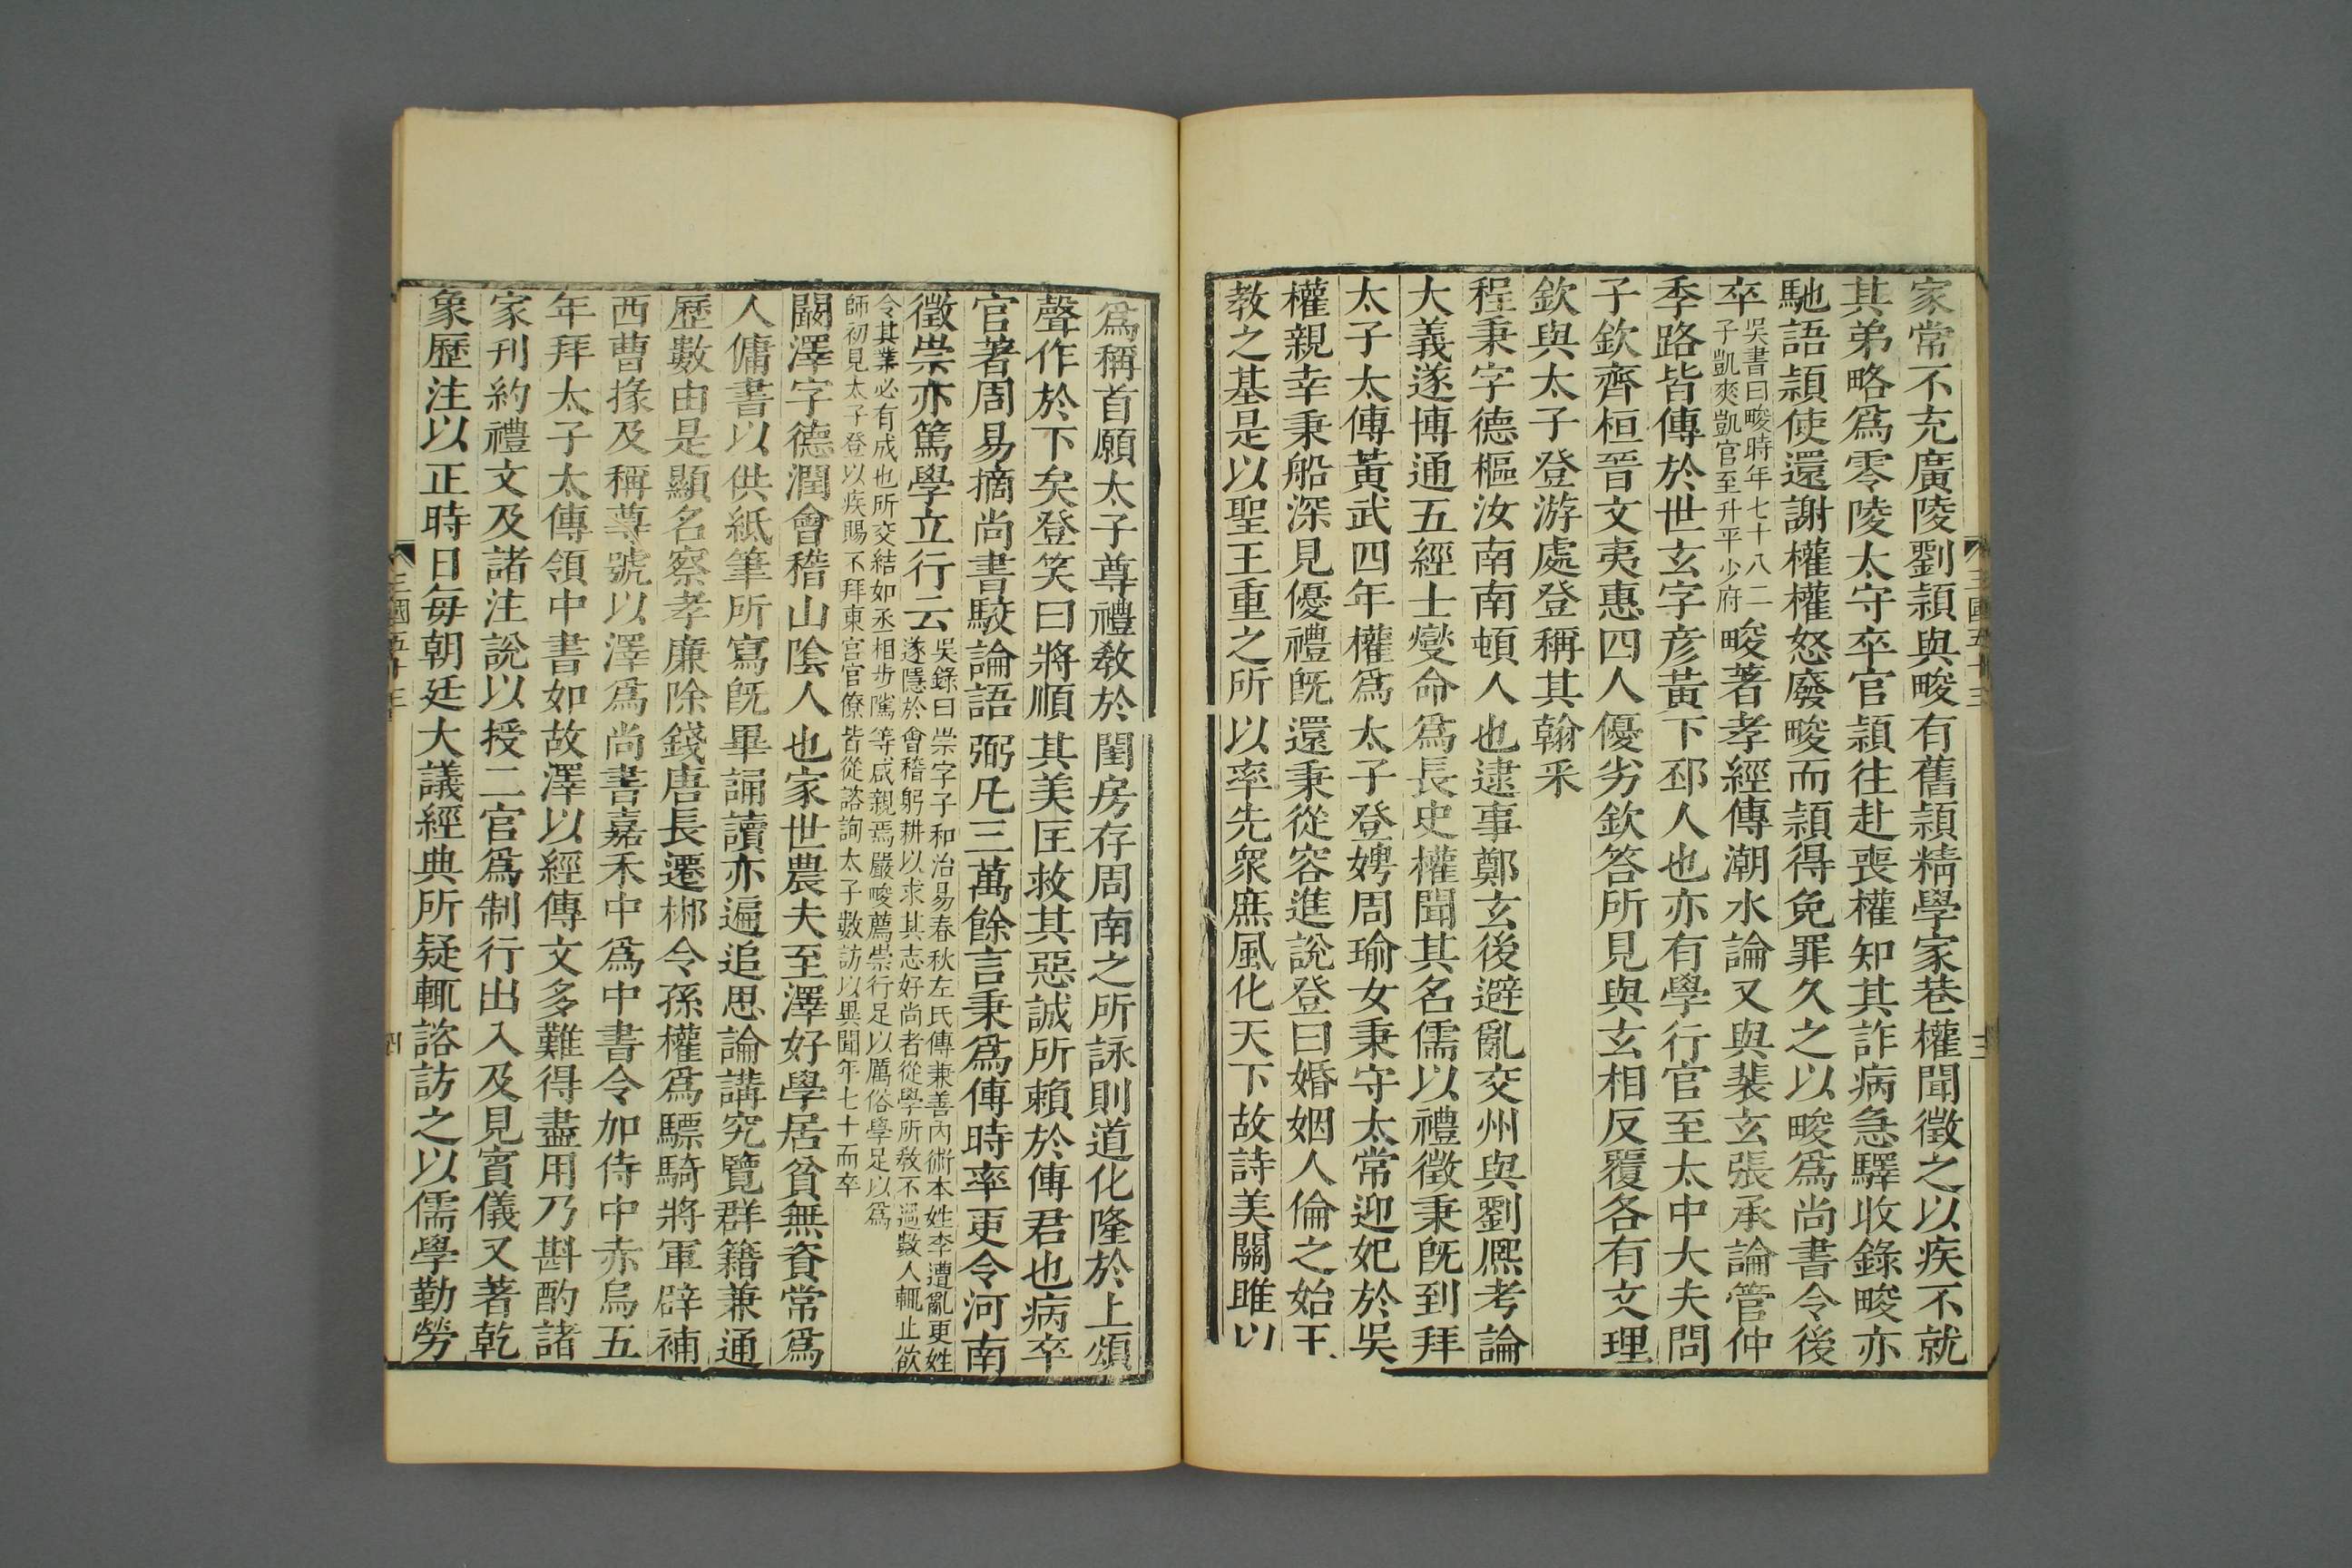 家常不充廣陵劉頴與畯有舊頴精學家巷權聞徵之以疾不就
其弟略爲零陵太守卒官頴往赴喪權知其詐病急驛收錄畯亦
馳語頴使還謝權權怒廢畯而頴得免罪久之以畯爲尚書令後
卒吳書曰畯時年七十八二
子凱爽凱官至升平少府畯著孝經傳潮水論又與裴玄張承論管仲
季路皆傳於世玄字彦黃下邳人也亦有學行官至太中大夫問
子欽齊桓晉文夷惠四人優劣欽答所見與玄相反覆各有文理
欽與太子登游處登稱其翰采
程秉字德樞汝南南頓人也逮事鄭玄後避亂交州與劉熈考論
大義遂博通五經士燮命爲長史權聞其名儒以禮徵秉旣到拜
太子太傅黃武四年權爲太子登娉周瑜女秉守太常迎妃於吳
權親幸秉船深見優禮旣還秉從容進說登曰婚姻人倫之始王
教之基是以聖王重之所以率先衆庶風化天下故詩美關雎以
三國五十三
三
爲稱首願太子尊禮敎於閨房存周南之所詠則道化隆於上頌
聲作於下矣登笑曰將順其美匡救其惡誠所賴於傅君也病卒
官著周易摘尚書駮論語弼凡三萬餘言秉爲傅時率更令河南
徵崇亦篤學立行云吳錄曰崇字子和治易春秋左氏傳兼善內術本姓李遭亂更姓
遂隱於會稽躬耕以求其志好尚者從學所敎不過數人輒止欲
令其業必有成也所交結如丞相步隲等咸親焉嚴畯薦崇行足以厲俗學足以爲
師初見太子登以疾賜不拜東宮官僚皆從諮詢太子數訪以異聞年七十而卒
闞澤字德潤會稽山陰人也家世農夫至澤好學居貧無資常爲
人傭書以供紙筆所寫旣畢誦讀亦遍追思論講究覽群籍兼通
歷數由是顯名察孝廉除錢唐長遷郴令孫權爲驃騎將軍辟補
西曹掾及稱尊號以澤爲尚書嘉禾中爲中書令加侍中赤烏五
年拜太子太傅領中書如故澤以經傳文多難得盡用乃斟酌諸
家刊約禮文及諸注說以授二宮爲制行出入及見賓儀又著乾
象歷注以正時日每朝廷大議經典所疑輒諮訪之以儒學勤勞
三國五十三
四